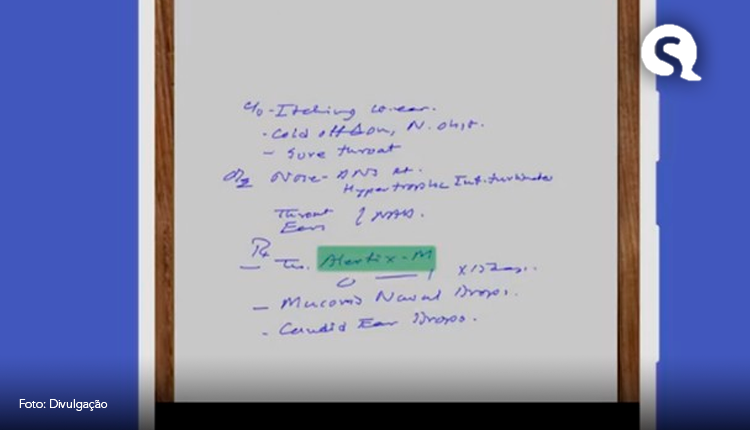 c/o - Itching in ear.
- Cold off & on, N. obst.
- Sore throat
O/E Nose - DNS Rt.
Hypertrophic Inf. turbinates
Throat
Ears } NAD.
Rx
- Tab. Alertix - M
0 — 1 x 15 days.
- Mucoris Nasal Drops.
- Candid Ear Drops.
Foto: Divulgação